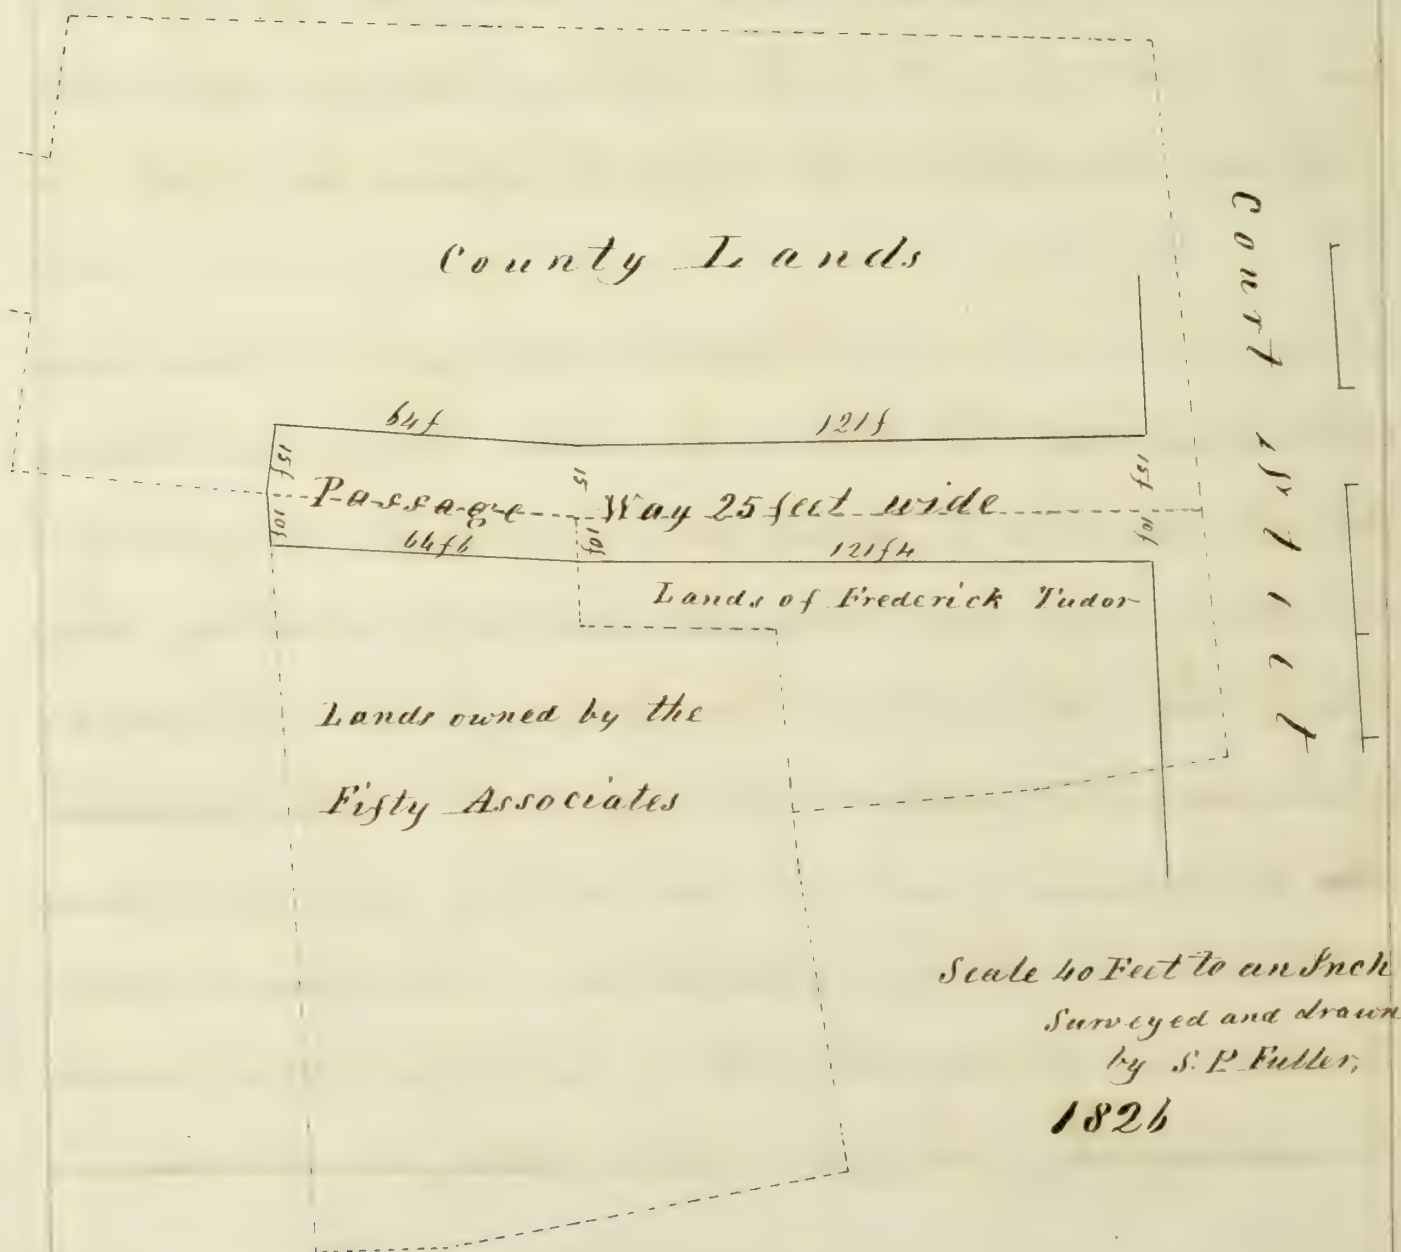 County Lands
Court Street
64f
121f
15f
15
15f
Passage Way 25 feet wide
10f
10f
10f
64f6
121f4
Lands of Frederick Tudor
Lands owned by the
Fifty Associates
Scale 40 Feet to an Inch
Surveyed and drawn
by S. P. Fuller,
1826